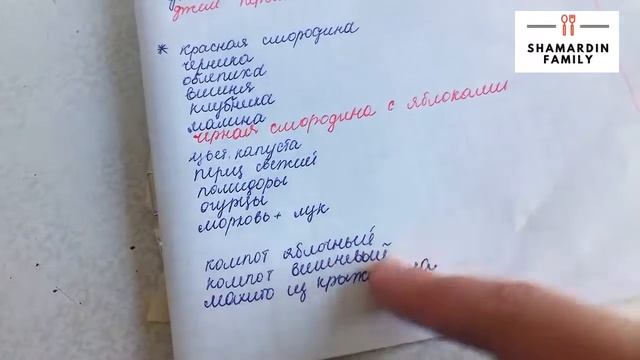 джем
* красная смородина
черника
облепиха
вишня
клубника
малина
черная смородина с яблоками
цвет. капуста
перец свежий
помидоры
огурцы
морковь + лук
компот яблочный
компот вишневый
мохито из
SHAMARDIN
FAMILY